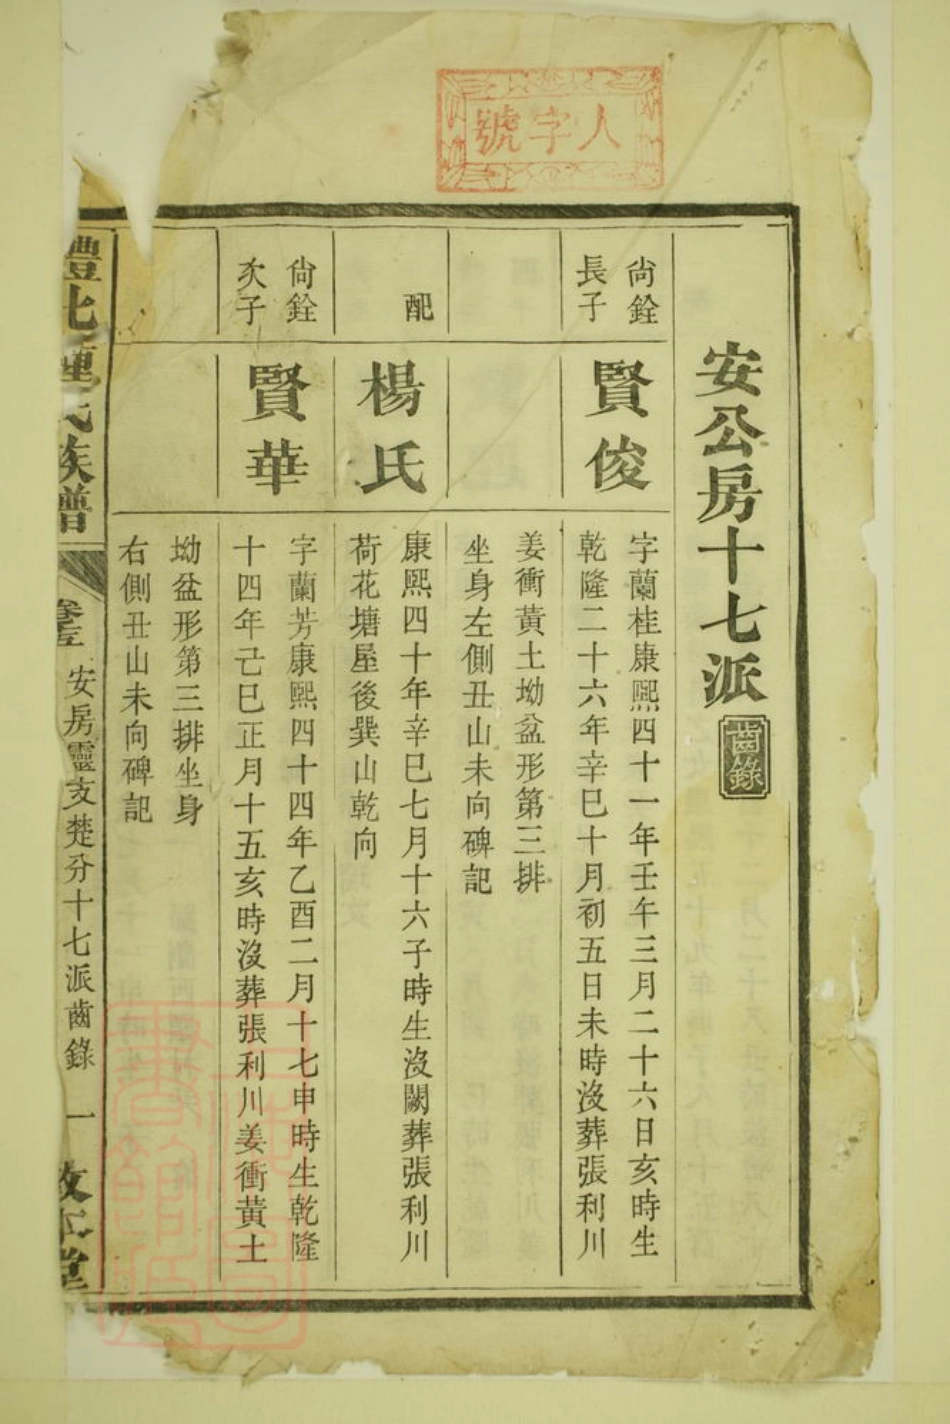 人字號
安公房十七派
齒錄
尙銓
長子
賢俊
字蘭桂康熙四十一年壬午三月二十六日亥時生
乾隆二十六年辛巳十月初五日未時沒葬張利川
姜衝黃土坳盆形第三排
坐身左側丑山未向碑記
配
楊氏
康熙四十年辛巳七月十六子時生沒闕葬張利川
荷花塘屋後巽山乾向
尙銓
次子
賢華
字蘭芳康熙四十四年乙酉二月十七申時生乾隆
十四年己巳正月十五亥時沒葬張利川姜衝黃土
坳盆形第三排坐身
右側丑山未向碑記
族譜
安房靈支楚分十七派齒錄
一